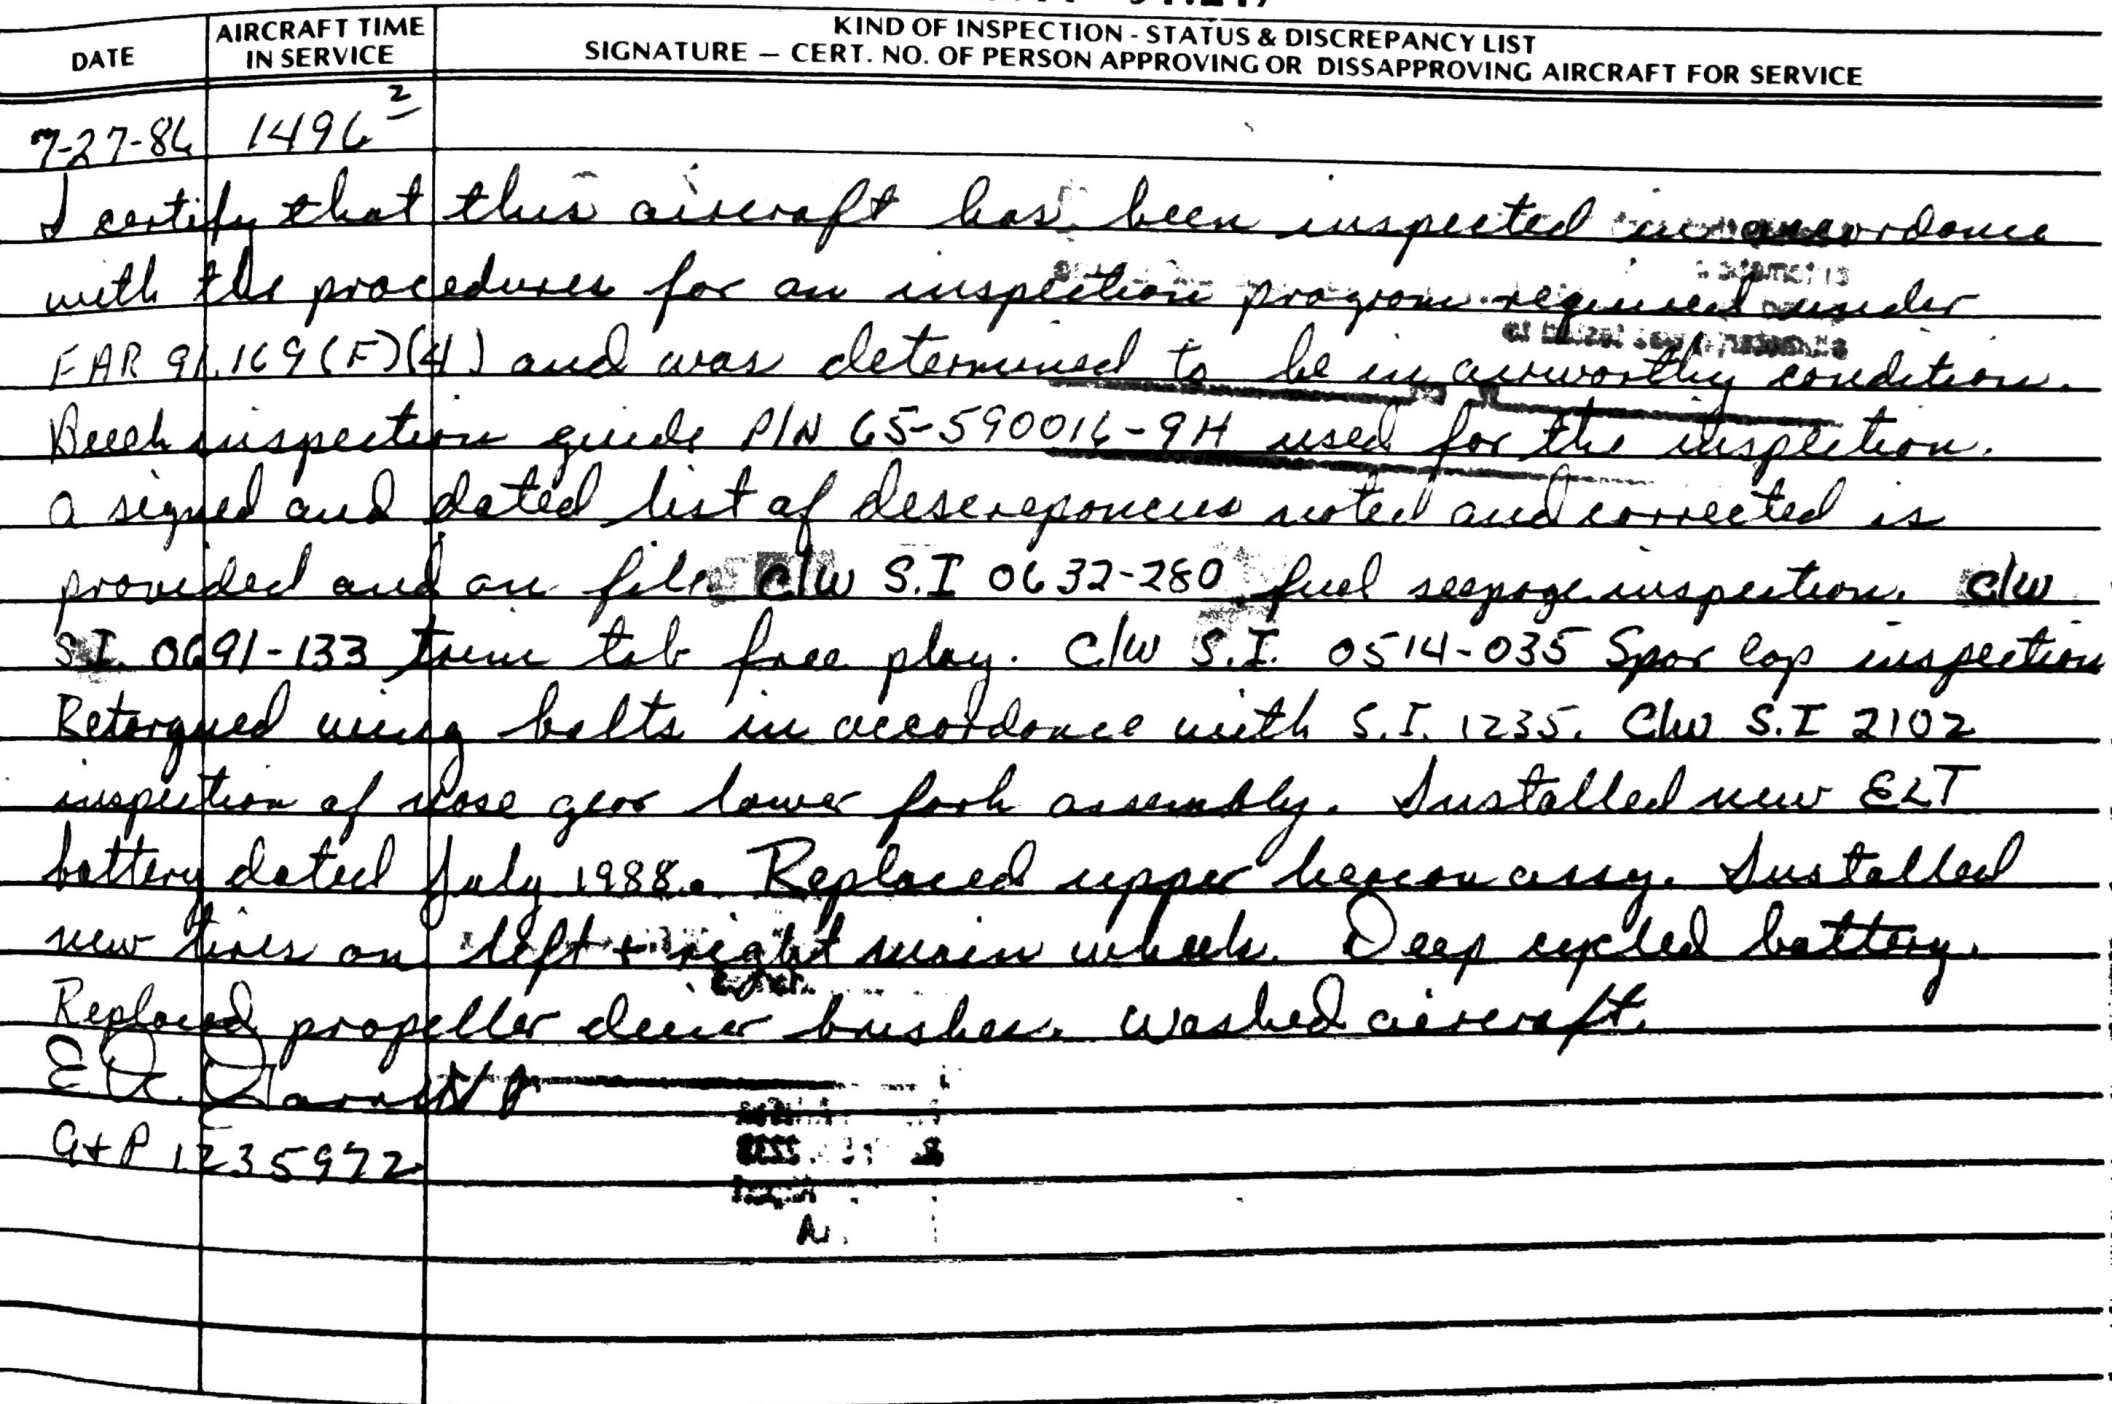 DATE AIRCRAFT TIME IN SERVICE KIND OF INSPECTION - STATUS & DISCREPANCY LIST
SIGNATURE — CERT. NO. OF PERSON APPROVING OR DISSAPPROVING AIRCRAFT FOR SERVICE
7-27-86 1496 2
I certify that this aircraft has been inspected in accordance
with the procedures for an inspection program required under
FAR 91.169(F)(4) and was determined to be in airworthy condition.
Beech inspection guide P/N 65-590016-9H used for the inspection.
a signed and dated list of descreponcies noted and corrected is
provided and on file. C/W S.I 0632-280 fuel seepage inspection. C/W
S.I. 0691-133 trim tab free play. C/W S.I. 0514-035 Spar cap inspection
Retorqued wing bolts in accordance with S.I. 1235. C/W S.I 2102
inspection of nose gear lower fork assembly. Installed new ELT
battery dated July 1988. Replaced upper beacon assy. Installed
new tires on left + right main wheels. Deep cycled battery.
Replaced propeller deice brushes. Washed aircraft.
E.A.
A+P 1235972